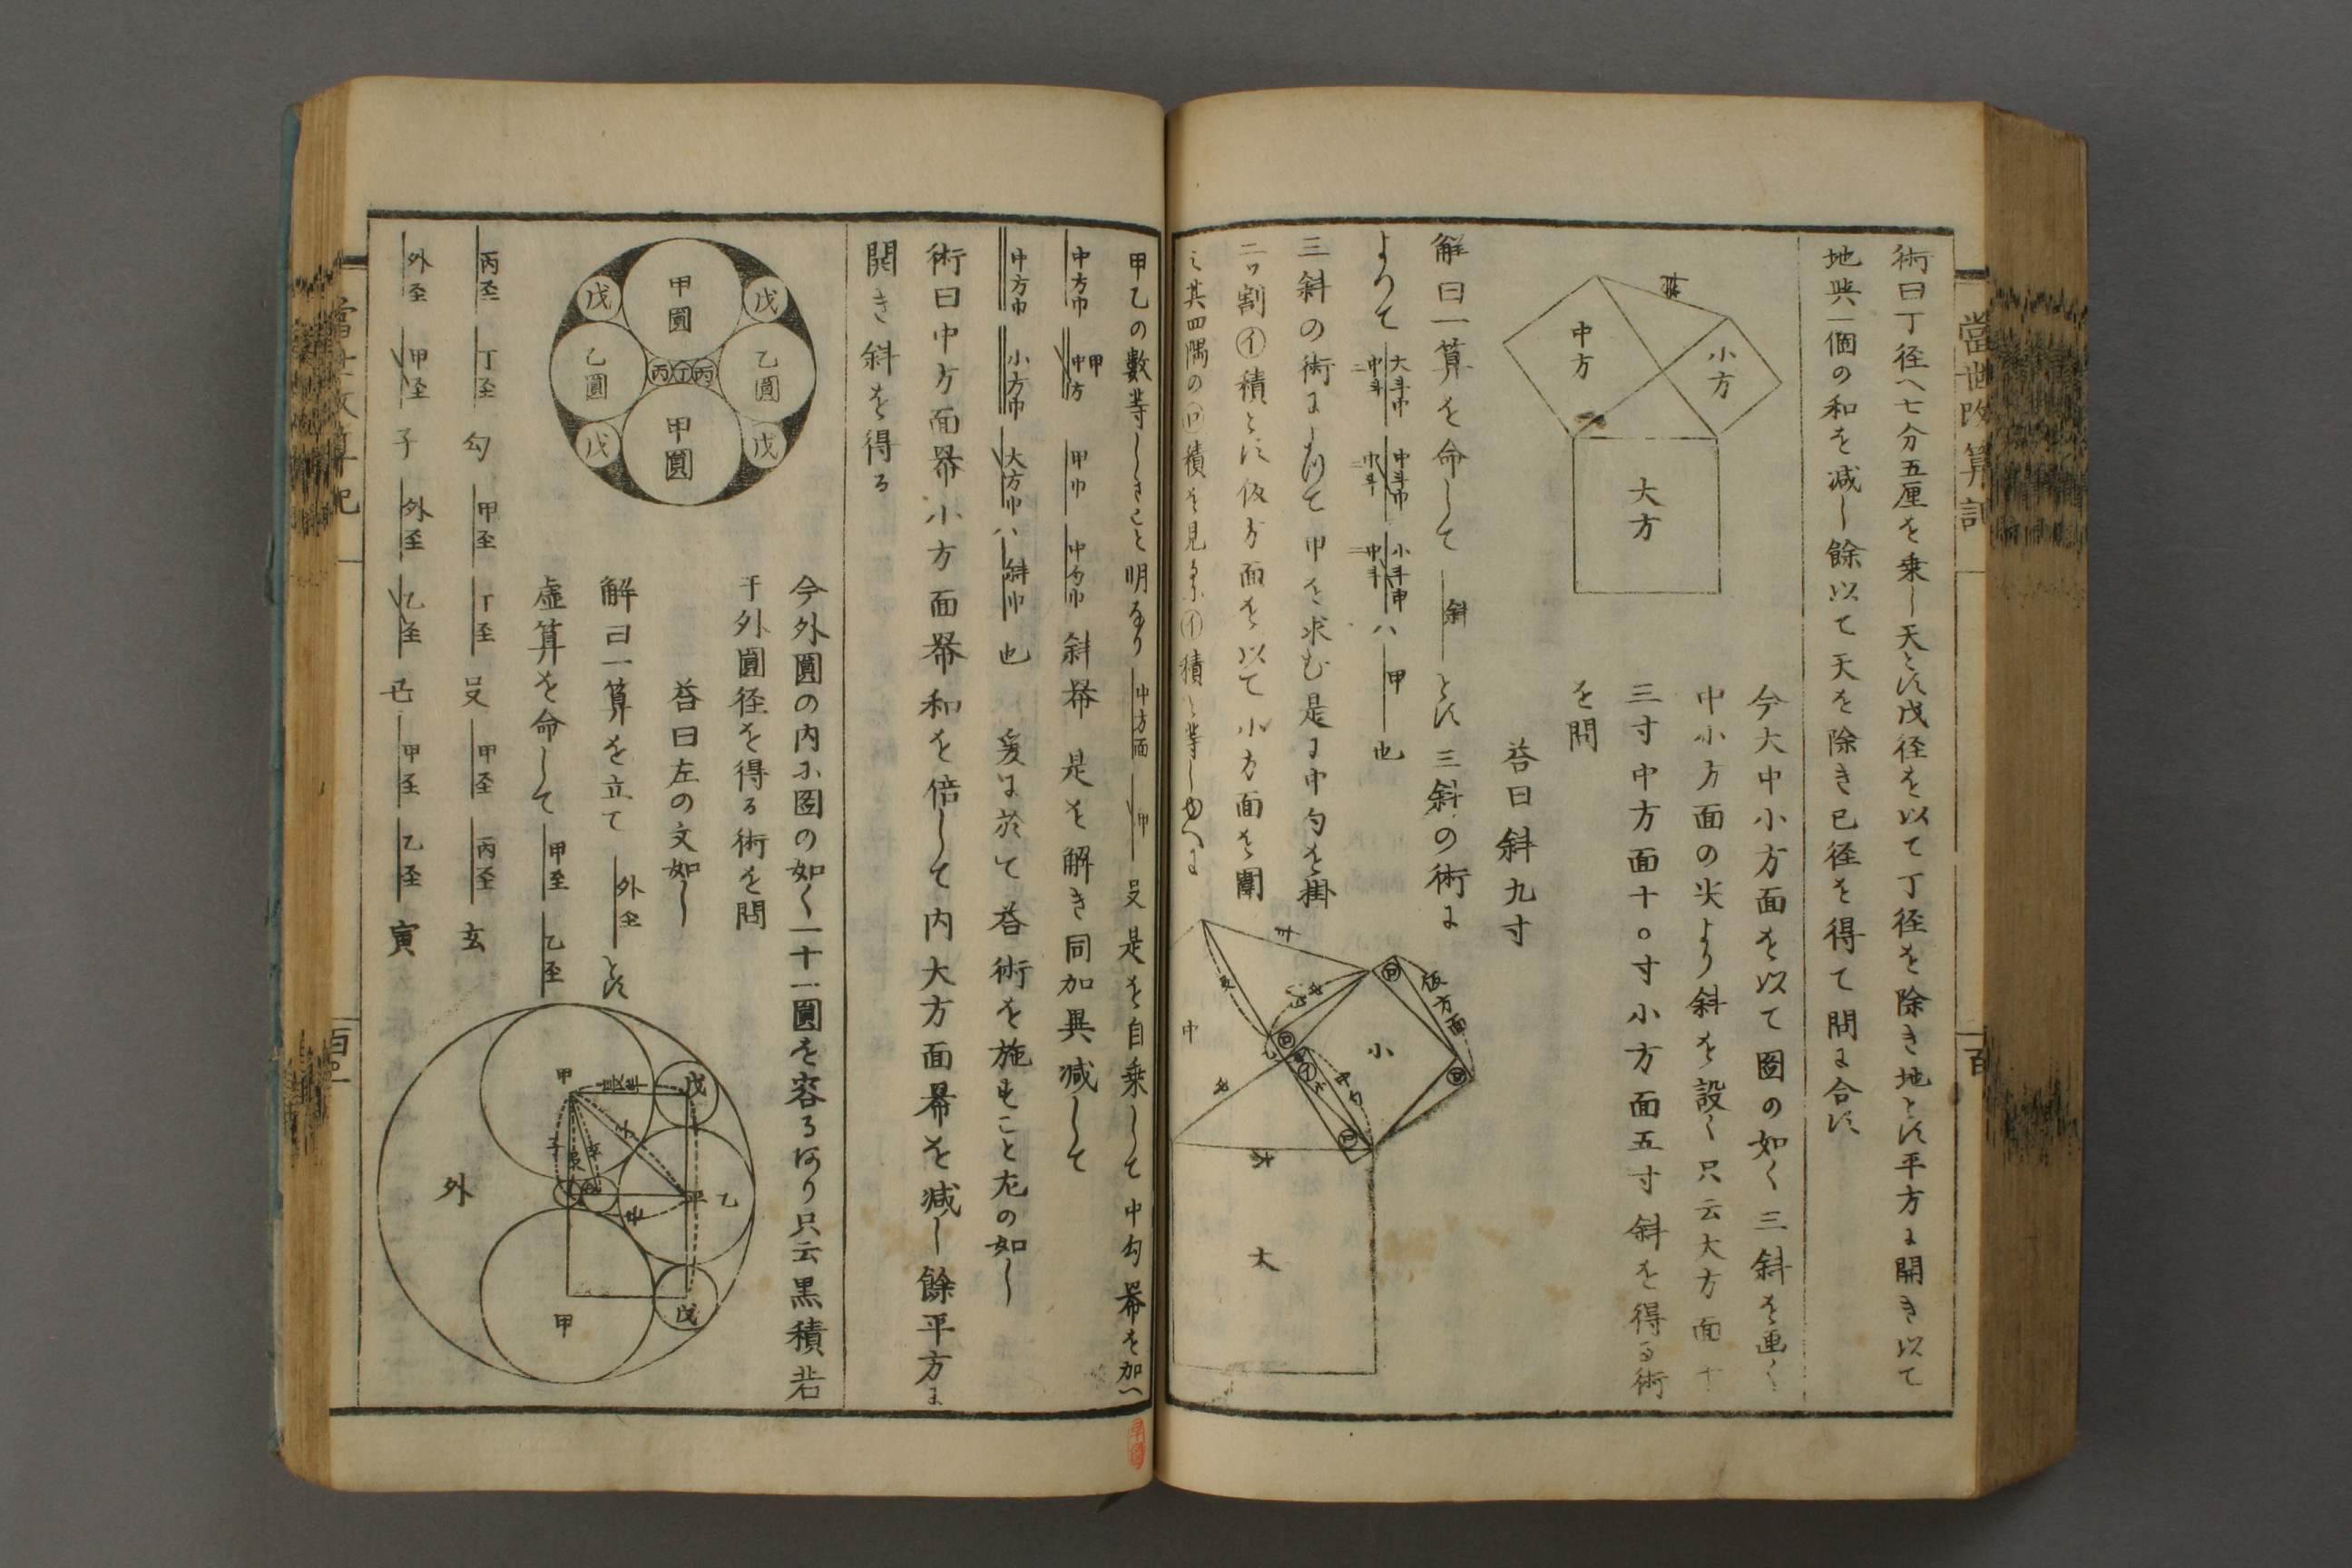 術曰丁径へ七分五厘を乗し天とす戊径を以て丁径を除き地とす平方に開き以て
地与一個の和を減し餘以て天を除き己径を得て問に合す
斜
中方
小方
大方
今大中小方面を以て圖の如く三斜を画く
中小方面の尖より斜を設く只云大方面十
三寸中方面十〇寸小方面五寸斜を得る術
を問
答曰斜九寸
解曰一算を命して 斜 とす三斜の術に
よつて
三斜の術によつて甲を求む是に中勾を掛
二ヲ割㋑積とす仮方面を以て小方面を圍
仮方面
小
中
大
甲乙の數等しきこと明なり 中方面 甲 是を自乗して中勾冪を加へ
中方巾 甲中方 甲巾 中勾巾 斜冪 是を解き同加異減して
中方巾 小方巾 大方巾 ハ 斜巾 也 爰に於て答術を施すこと左の如し
術曰中方面冪小方面冪和を倍して内大方面冪を減し餘平方に
開き斜を得る
甲圓
乙圓
乙圓
甲圓
戊
戊
戊
戊
丙
丁
丙
今外圓の内に圖の如く一十一圓を容るあり只云黒積若
干外圓径を得る術を問
答曰左の文如し
解曰一算を立て 外至 とす
虚算を命して 甲至 乙至
丙至 丁至 勾 甲至 丁至 甲至 丙至 玄
外至 甲至 子 外至 乙至 甲至 乙至 寅
甲
戊
乙
外
甲
戊
當世改算記
百